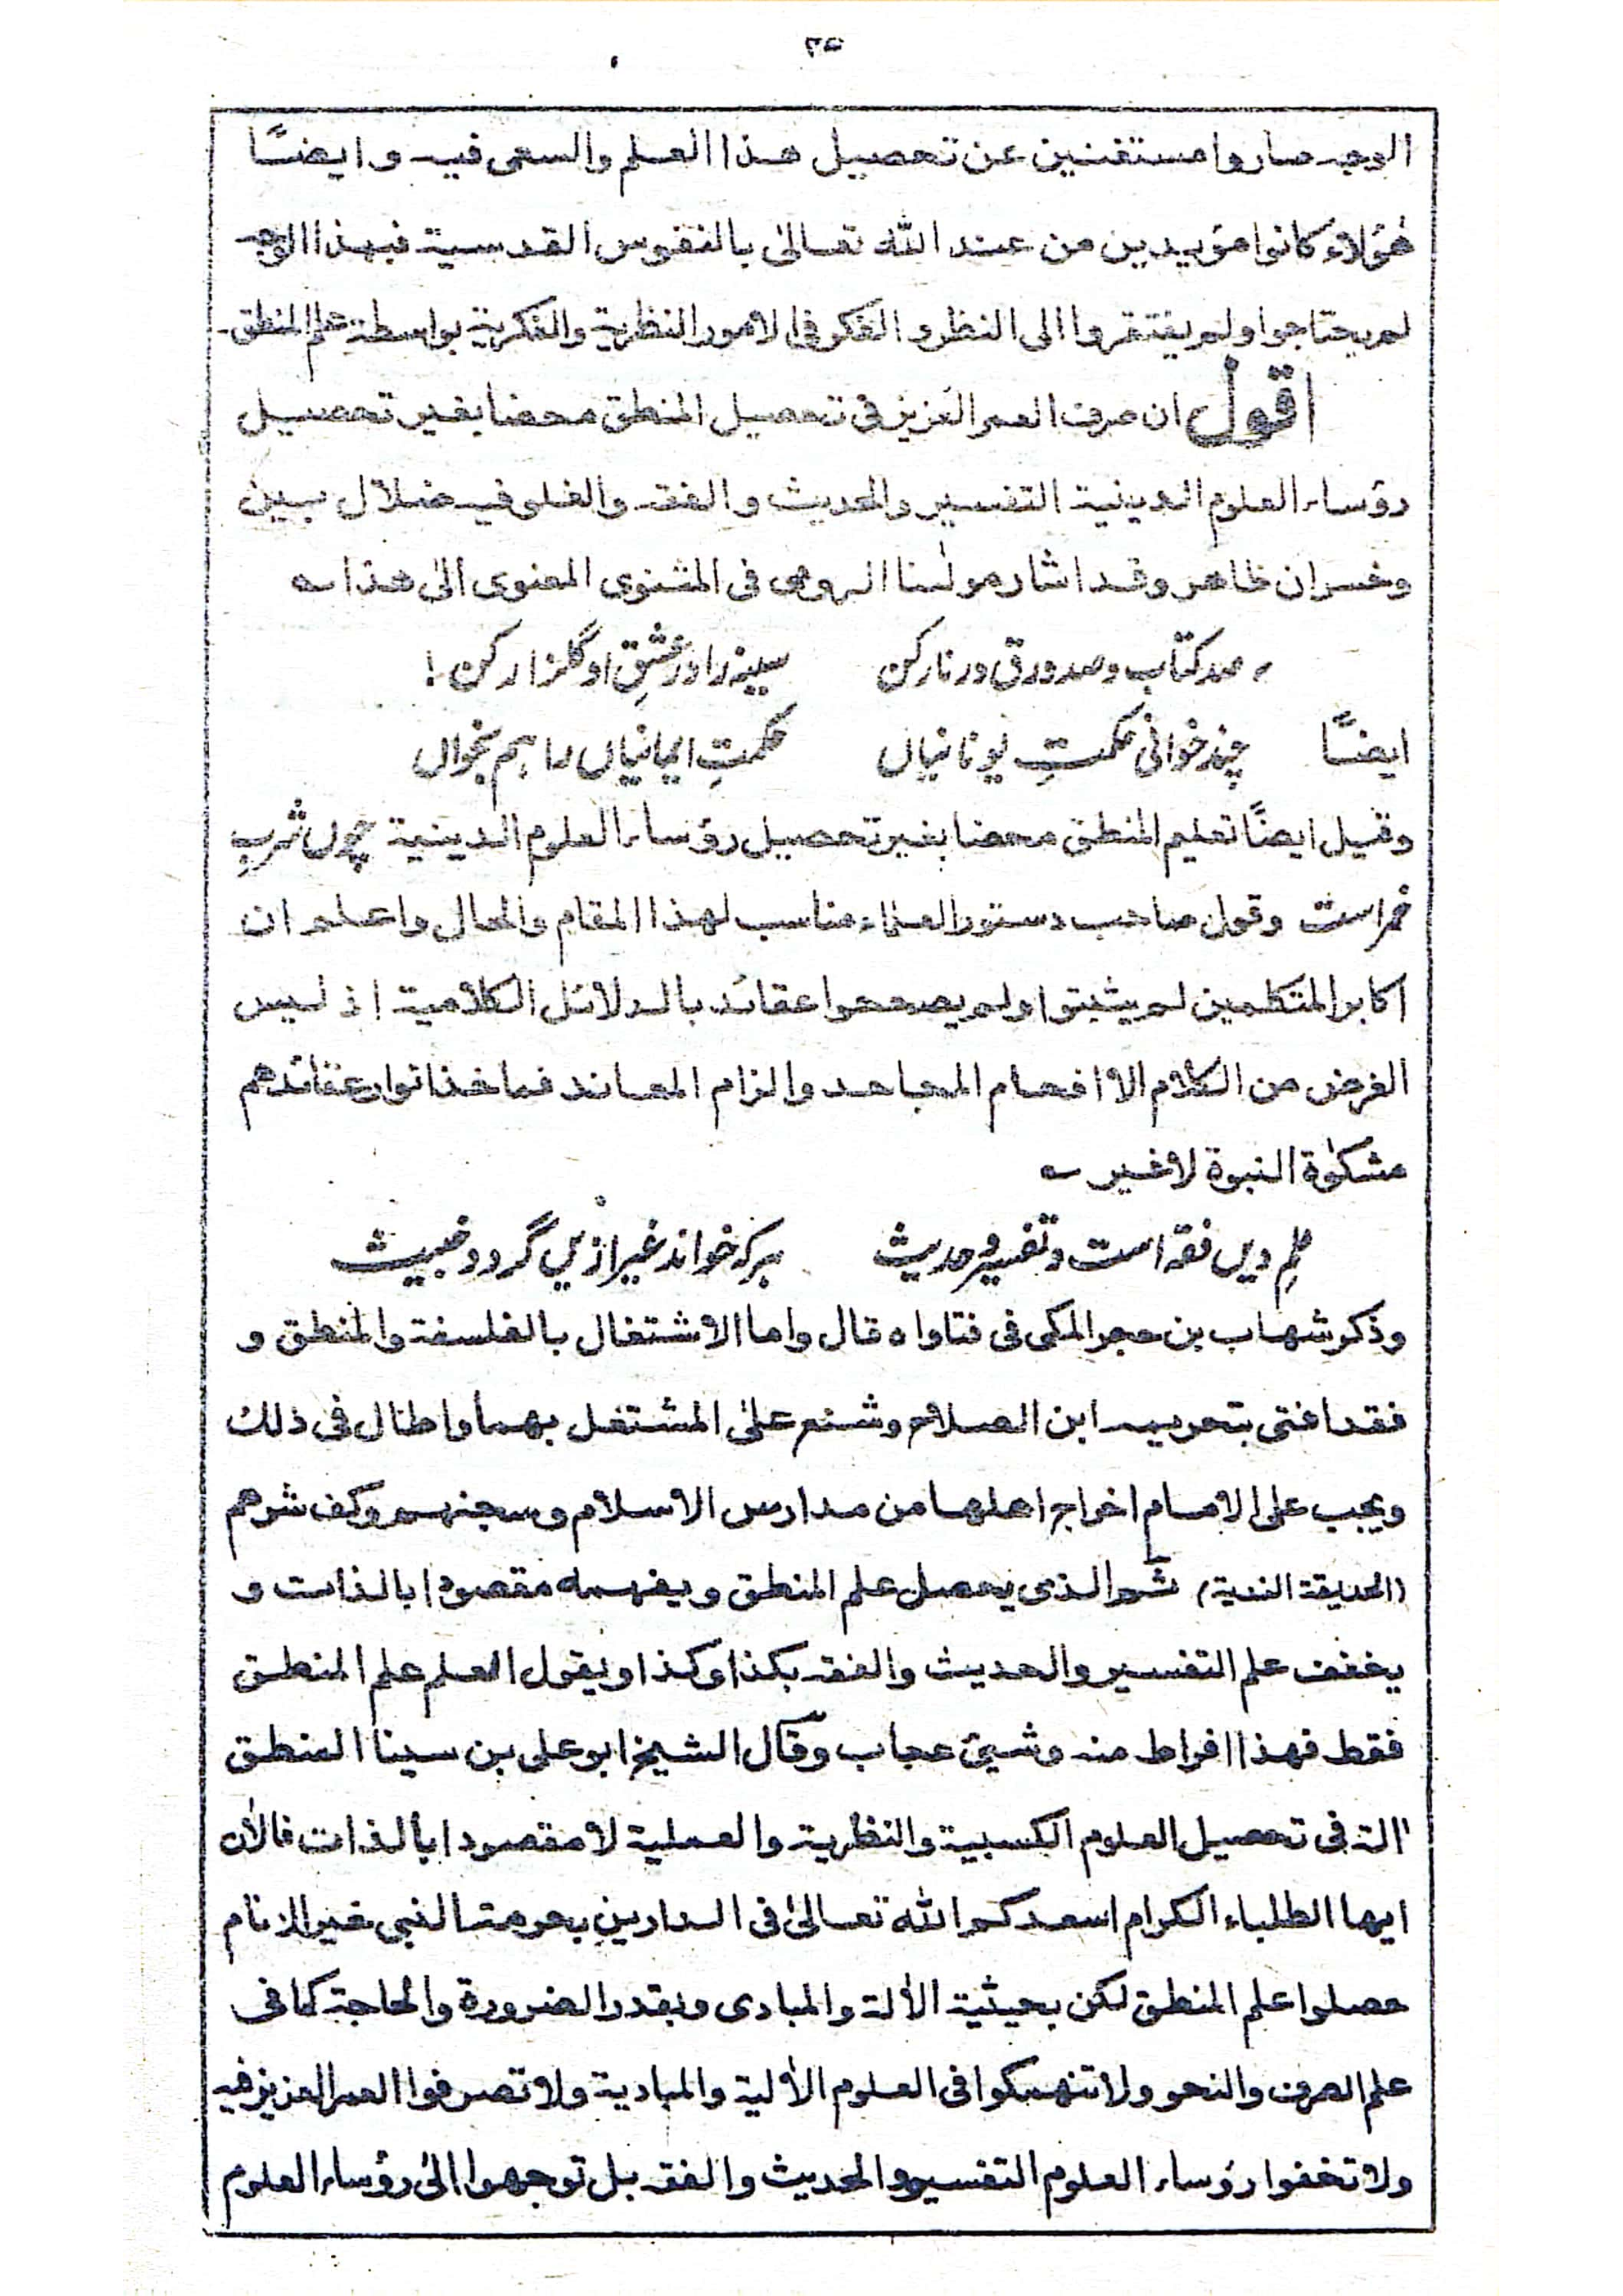 ٢٥
الوجه صاروا مستغنين عن تحصيل هذا العلم والسعى فيه وايضًا
هٰؤلاء كانوا مؤيدين من عند الله تعالىٰ بالنفوس القدسية فبهذا الوجه
لم يحتاجوا ولم يفتقروا الى النظر و الفكر فى الامور النظرية والفكرية بواسطة علم المنطق۔
اقول ان صرف العمر العزيز فى تحصيل المنطق محضا بغير تحصيل
رؤساء العلوم الدينية التفسير والحديث و الفقه والغلو فيه ضلال بين
وخسران ظاهر وقد اشار مولٰنا الرومى فى المثنوى المعنوى الىٰ هذا ے
صد کتاب و صد ورق در نار کن سینہ را در عشقِ او گلزار کن !
ايضًا چند خوانی حکمتِ یونانیاں حکمتِ ایمانیاں را ہم بخواں
وقيل ايضًا تعليم المنطق محضا بغير تحصيل رؤساء العلوم الدينية چوں شربِ
خمر است وقول صاحب دستور العلماء مناسب لهذا المقام والحال واعلم ان
اكابر المتكلمين لم يثبتوا ولم يصححوا عقائد بالدلائل الكلامية اذ ليس
الغرض من الكلام الا افحام المجاحد والزام المعاند فماخذ انوار عقائدهم
مشكوٰة النبوة لاغير ے
علمِ دیں فقہ است و تفسیر و حدیث ہر کہ خواند غیر ازیں گردد خبیث
وذكر شهاب بن حجر المكى فى فتاواه قال واما الاشتغال بالفلسفة والمنطق و
فقد افتى بتحريمه ابن الصلاح وشنع علىٰ المشتغل بهما واطال فى ذلك
ويجب على الامام اخراج اهلها من مدارس الاسلام وسجنهم وكف شرهم
(الحديقة الندية) ثم الذى يحصل علم المنطق ويفهمه مقصودا بالذات و
يخفف علم التفسير والحديث والفقه بكذا وكذا ويقول العلم علم المنطق
فقط فهذا افراط منه وشيئ عجاب وقال الشيخ ابو على بن سينا المنطق
اٰلة فى تحصيل العلوم الكسبية والنظرية والعملية لا مقصودا بالذات فالاٰن
ايها الطلباء الكرام اسعدكم الله تعالىٰ فى الدارين بحرمة النبى خير الانام
حصلوا علم المنطق لكن بحيثية الاٰلة والمبادى وبقدر الضرورة والحاجة كما فى
علم الصرف والنحو ولا تنهمكوا فى العلوم الاٰلية والمبادية ولا تصرفوا العمر العزيز فيه
ولا تخفوا رؤساء العلوم التفسير والحديث والفقه بل توجهوا الىٰ رؤساء العلوم